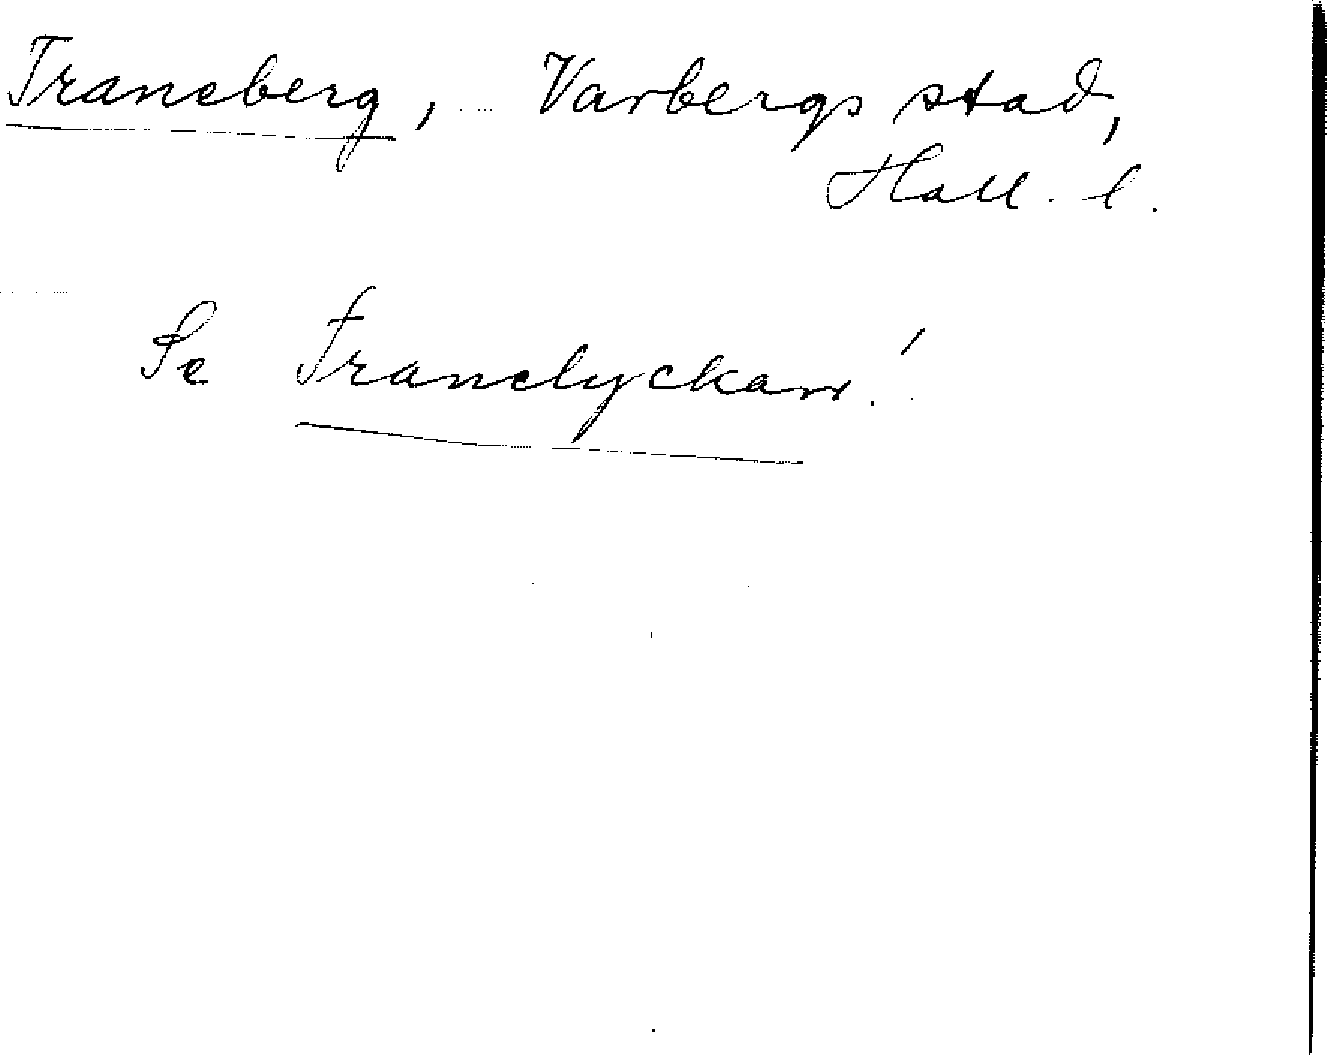 Traneberg, Varbergs stad,
Hall. l.
Se Tranelyckan!